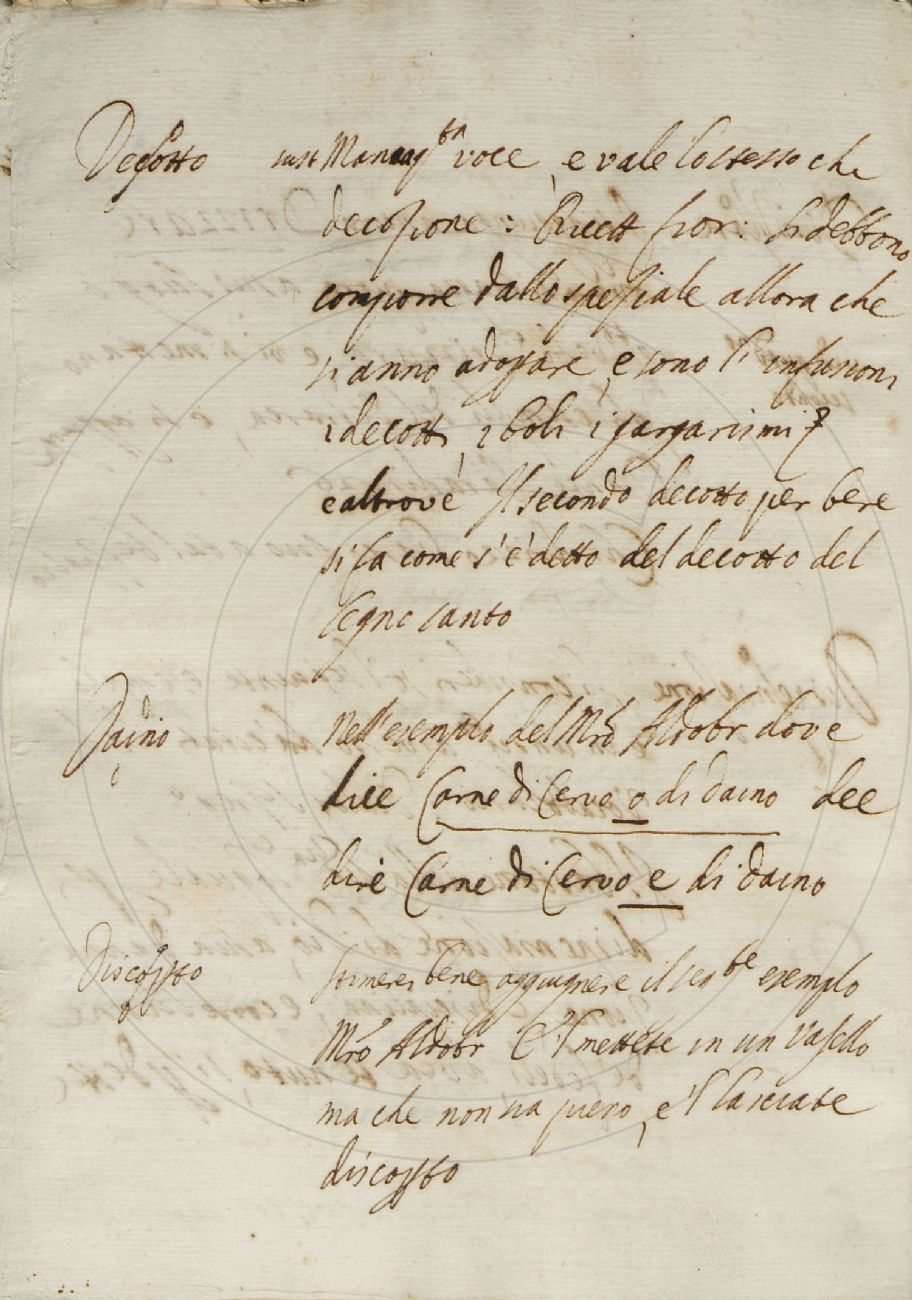 Decotto sust Manca q.ta voce, e vale lo stesso che
decozione: Ricett fior: Si debbono
comporre dallo speziale allora che
si anno adoprare, e sono l'infusioni
i decotti, i boli i gargarismi
e altrove Il secondo decotto per bere
si fa come s'è detto del decotto del
legno santo
Daino Nell'esemplo del Mro Aldobr dove
dice Carne di Cervo o di daino dee
dire Carne di Cervo e di daino
Discoperto Stimerei bene aggiugnere il seg.te esemplo
Mro Aldobr E'l mettete in un vasello
ma che non sia pieno, e'l lasciate
discoperto